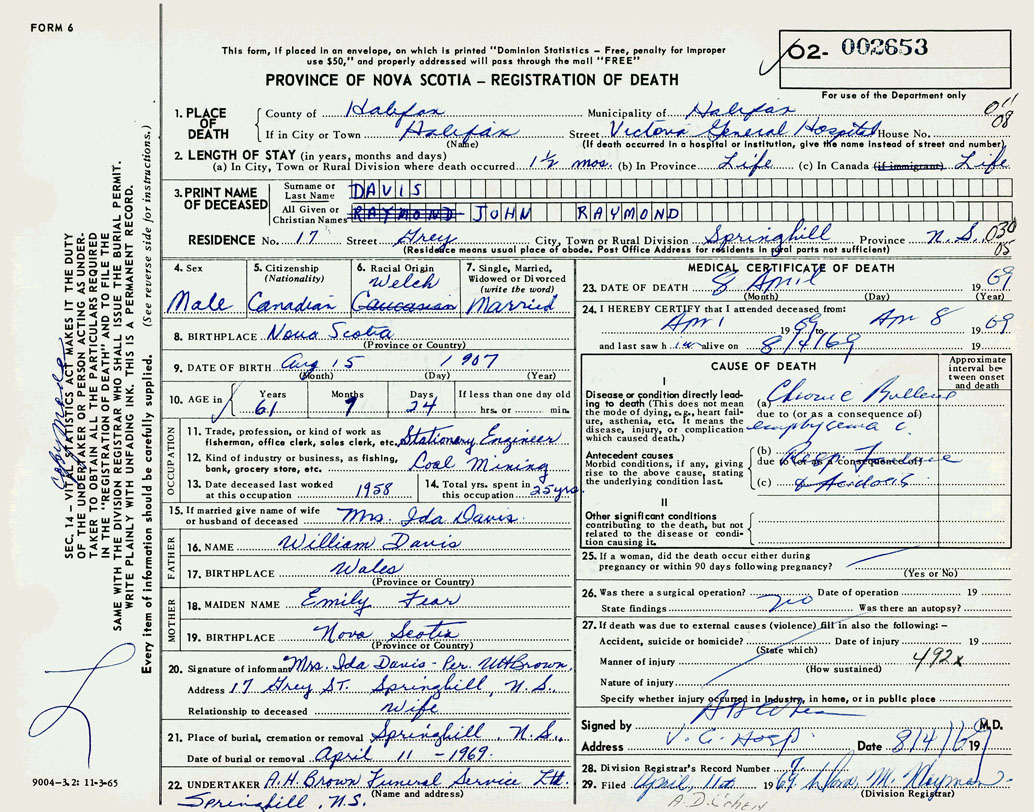 FORM 6
This form, if placed in an envelope, on which is printed "Dominion Statistics – Free, penalty for improper
use $50," and properly addressed will pass through the mail "FREE"
PROVINCE OF NOVA SCOTIA – REGISTRATION OF DEATH
02- 002653
For use of the Department only
1. PLACE OF DEATH
County of Halifax Municipality of Halifax
If in City or Town Halifax Street Victoria General Hospital House No.
(Name) (If death occurred in a hospital or institution, give the name instead of street and number)
08
2. LENGTH OF STAY (in years, months and days)
(a) In City, Town or Rural Division where death occurred 1 1/2 mos. (b) In Province Life (c) In Canada (if immigrant) Life
3. PRINT NAME OF DECEASED
Surname or Last Name DAVIS
All Given or Christian Names RAYMOND JOHN RAYMOND
RESIDENCE No. 17 Street Grey City, Town or Rural Division Springhill Province N.S. 030
05
(Residence means usual place of abode. Post Office Address for residents in rural parts not sufficient)
4. Sex
Male
5. Citizenship
(Nationality)
Canadian
6. Racial Origin
Welch
Caucasian
7. Single, Married,
Widowed or Divorced
(write the word)
Married
8. BIRTHPLACE Nova Scotia
(Province or Country)
9. DATE OF BIRTH Aug 15 1907
(Month) (Day) (Year)
10. AGE in
Years 61
Months 7
Days 24
If less than one day old
hrs. or min.
OCCUPATION
11. Trade, profession, or kind of work as
fisherman, office clerk, sales clerk, etc. Stationary Engineer
12. Kind of industry or business, as fishing,
bank, grocery store, etc. Coal Mining
13. Date deceased last worked
at this occupation 1958
14. Total yrs. spent in
this occupation 25 yrs.
15. If married give name of wife
or husband of deceased Mrs. Ida Davis.
FATHER
16. NAME William Davis
17. BIRTHPLACE Wales
(Province or Country)
MOTHER
18. MAIDEN NAME Emily Fear
19. BIRTHPLACE Nova Scotia
(Province or Country)
20. Signature of informant Mrs. Ida Davis - Per. WHBrown.
Address 17 Grey ST. Springhill, N.S.
Relationship to deceased Wife
21. Place of burial, cremation or removal Springhill, N.S.
Date of burial or removal April 11 - 1969.
22. UNDERTAKER A.H. Brown Funeral Service Ltd.
(Name and address)
Springhill, N.S.
MEDICAL CERTIFICATE OF DEATH
23. DATE OF DEATH 8 April 1969
(Month) (Day) (Year)
24. I HEREBY CERTIFY that I attended deceased from:
Apr 1 1969 to Apr 8 1969
and last saw h im alive on 8/4/69 19
CAUSE OF DEATH
Approximate
interval be-
tween onset
and death
I
Disease or condition directly lead-
ing to death (This does not mean
the mode of dying, e.g., heart fail-
ure, asthenia, etc. It means the
disease, injury, or complication
which caused death.)
(a) Chronic Bullous
due to (or as a consequence of)
emphysema c
Antecedent causes
Morbid conditions, if any, giving
rise to the above cause, stating
the underlying condition last.
(b) Resp. Failure
due to (or as a consequence of)
(c) & Acidosis
II
Other significant conditions
contributing to the death, but not
related to the disease or condi-
tion causing it.
25. If a woman, did the death occur either during
pregnancy or within 90 days following pregnancy?
(Yes or No)
26. Was there a surgical operation? no Date of operation 19
State findings Was there an autopsy?
27. If death was due to external causes (violence) fill in also the following: –
Accident, suicide or homicide? Date of injury 19
(State which)
Manner of injury 492x
(How sustained)
Nature of injury
Specify whether injury occurred in industry, in home, or in public place
Signed by M.D.
Address V. G. Hosp. Date 8/4/69 19
28. Division Registrar's Record Number
29. Filed April, 11th 1969
(Division Registrar)
A. D. Cohen
SEC. 14 – VITAL STATISTICS ACT MAKES IT THE DUTY
OF THE UNDERTAKER OR PERSON ACTING AS UNDER-
TAKER TO OBTAIN ALL THE PARTICULARS REQUIRED
IN THE "REGISTRATION OF DEATH" AND TO FILE THE
SAME WITH THE DIVISION REGISTRAR WHO SHALL ISSUE THE BURIAL PERMIT.
WRITE PLAINLY WITH UNFADING INK. THIS IS A PERMANENT RECORD.
Every item of information should be carefully supplied. (See reverse side for instructions.)
9004-3.2: 11-3-65